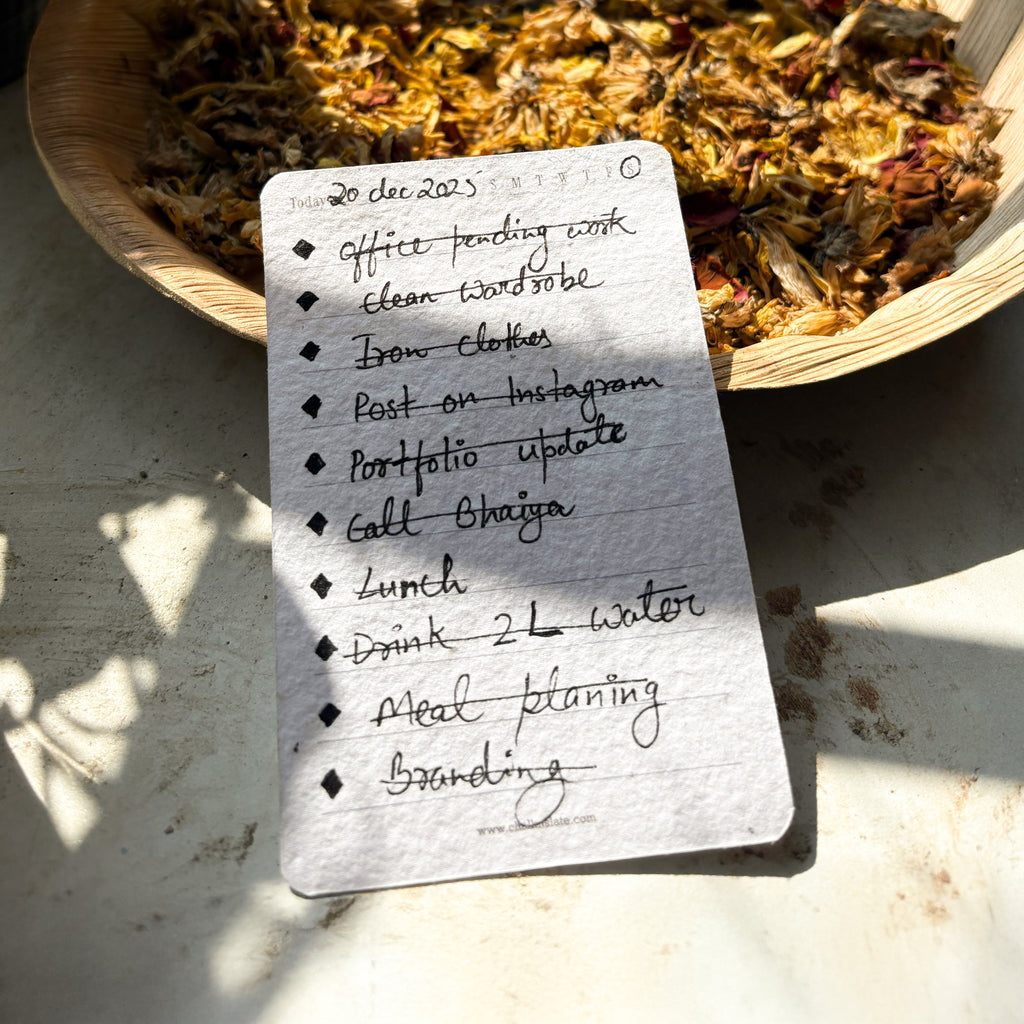 Today 20 dec 2025 S M T W T F S
office pending work
clean wardrobe
Iron clothes
Post on Instagram
Portfolio update
Call Bhaiya
Lunch
Drink 2L water
Meal planing
Branding